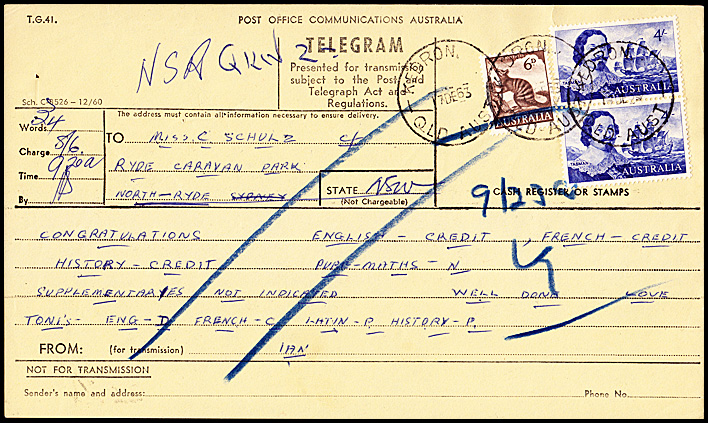 T.G.41.
POST OFFICE COMMUNICATIONS AUSTRALIA
NSA QRW 2-
TELEGRAM
Presented for transmission
subject to the Post and
Telegraph Act and
Regulations.
Sch. C8526 - 12/60
KEDRON.
17DE63
QLD-AUST
6D
AUSTRALIA
4/-
AUSTRALIA
TASMAN
AUSTRALIA
The address must contain all information necessary to ensure delivery.
Words 24
Charge 8/6.
Time 920a
By
TO MISS. C SCHULZ C/-
RYDE CARAVAN PARK
NORTH-RYDE SYDNEY
STATE NSW
(Not Chargeable)
CASH REGISTER OR STAMPS
9/25a
CONGRATULATIONS ENGLISH - CREDIT , FRENCH - CREDIT
HISTORY - CREDIT PURE-MATHS - N
SUPPLEMENTARYES NOT INDICATED WELL DONE LOVE
TONI'S - ENG-D FRENCH-C LATIN-P HISTORY-P.
FROM: (for transmission) IAN
NOT FOR TRANSMISSION
Sender's name and address:
Phone No.